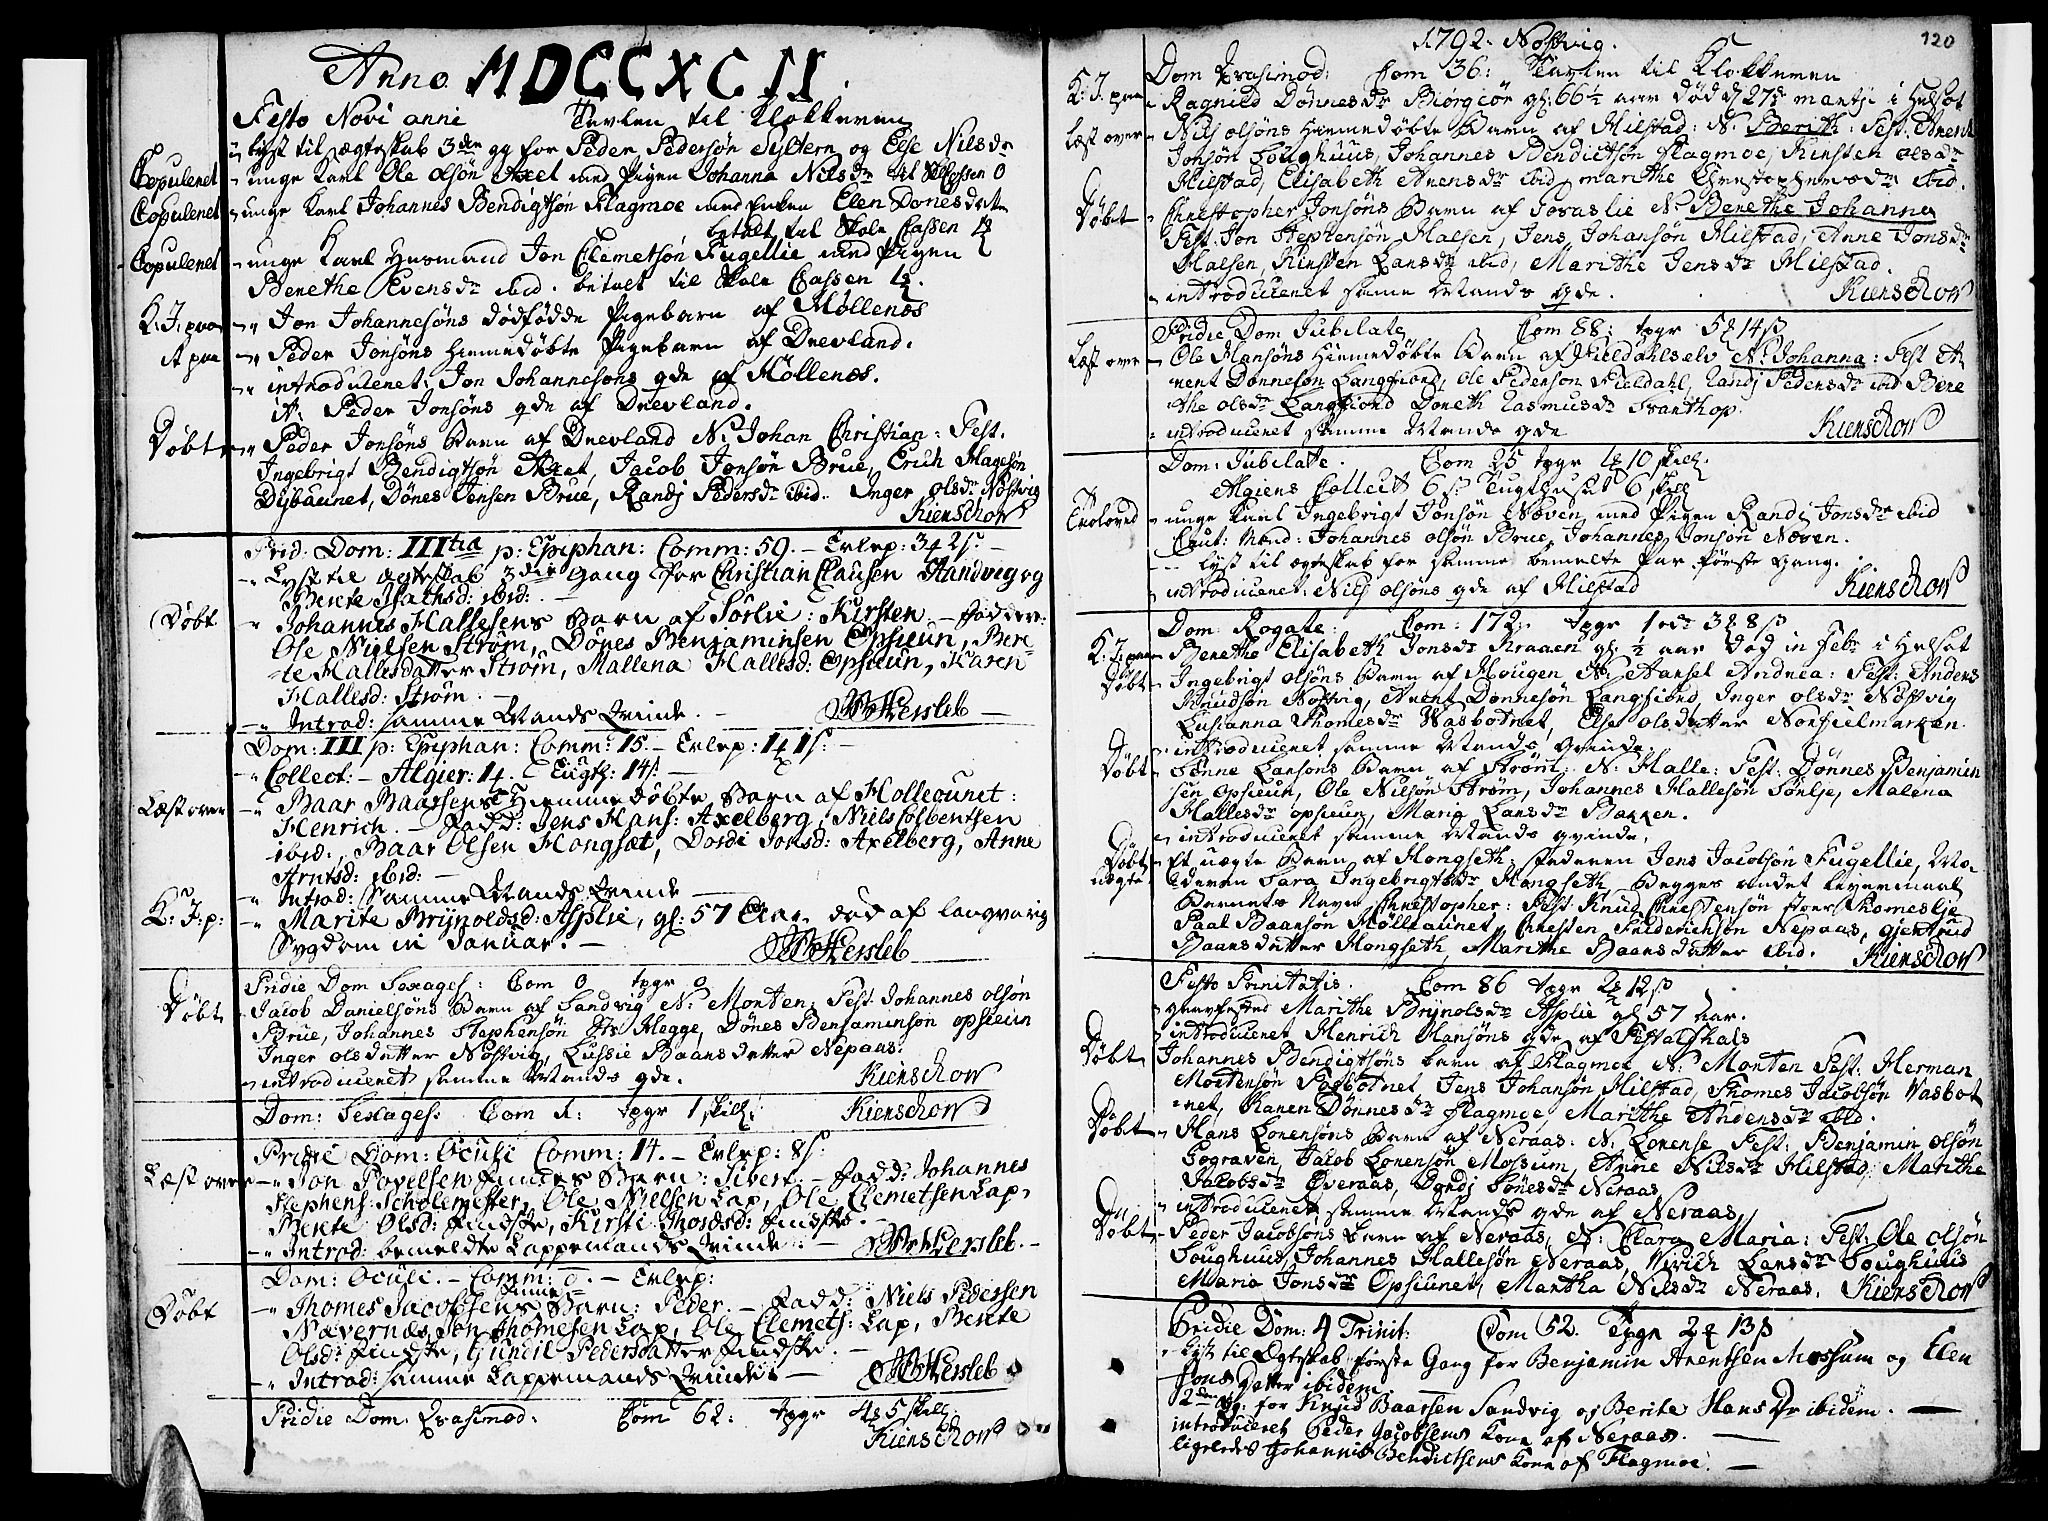 Anno MDCCXCII.
Festo Novi anni Tavlen til Klokkeren
lyst til ægteskab 3die gg for Peder Pedersön Syltern og Else Nilsdr
Copuleret unge Karl Ole olsön Axel med Pigen Johanna Nilsdr til SkCassen 0
Copuleret unge Karl Johannes Bendigtsön Flagmoe med Enken Elen Dönesdatter
betalt til Skole Cassen
Copuleret unge Karl Husmand Jon Clemetsön Fugellie med Pigen
Berethe Evensdr ibid. betalt til Skole Cassen
K: J: paa Jon Johannesöns dödfödde Pigebarn af Möllenæs
It paa Peder Jonsöns hiemedöbte Pigebarn af Drevland.
introduceret: Jon Johannesöns qde af Möllenæs.
it: Peder Jonsöns qde af Drevland.
Döbt Peder Jonsöns Barn af Drevland N: Johan Christian: Test.
Ingebrigt Bendigtsön Axel, Jacob Jonsön Brue, Erich
Dönes Jensen Brue, Randj Pedersdr ibid. Inger olsdr Nöstvig
Kierschow
Prid: Dom: IIItia p: Epiphan: Comm: 59. Erlep: 3 2 s.
Lyst til ægteskab 3die Gang for Christian Clausen Sandvig og
Berete ibid:
Döbt Johannes Hallesens Barn af Sörlie: Kirsten Fadder:
Ole Nielsen Ström, Dönes Benjaminsen Opsieun, Bere-
te Hallesdatter Ström, Mallena Hallesd: Opsieun, Karen
Hallesd: Ström.
Introd: samme Mands Qvinde. Hersleb
Dom: III p: Epiphan: Comm: 15. Erlep: 1 1 s:
Collect: Algier: 14. Tugth: 14 s.
Læst over Baar Baarsens Hiemmedöbte Barn af Molleaunet:
Henrich. Fadd: Jens Hans: Axelberg, Niels Solbentsen
ibid:, Baar Olsen Hongsæt, Dordi Jonsd: Axelberg, Anne
Arntsd: ibid:
Introd: Samme Mands Qvinde
K: J: p: Marite Brynoldsd: Asplie, gl: 57 Aar. död af langvarig
Sygdom in Januar. Hersleb
Pridie Dom Sexages: Com 0 tpgr 0
Döbt Jacob Danielsöns Barn af Sandvig N: Morten: Test: Johannes olsön
Brue, Johannes Stephensön Hegge, Dönes Benjaminsön opsieun
Inger olsdatter Nöstvig, Lussie Baarsdatter Nepaas.
introduceret samme Mands qde. Kierschow
Dom: Sexages: Com 1: tpgr 1 skill: Kierschow
Pridie Dom: Oculi Comm: 14. Erlep: 8 s:
Læst over Jon Povelsen Findes Barn: Sivert. Fadd: Johannes
Stephens: Scholemester, Ole Nielsen Lap, Ole Clemetsen Lap,
Berete Olsd: Findske, Kirsti Findske.
Introd: bemeldte Lappemands Qvinde. Hersleb.
Dom: Oculi. Comm: 0. Erlep:
Döbt Thomes Jacobsens Barn: Peder. Fadd: Niels Pedersen
Nævernæs, Jon Thomesen Lap, Ole Clemets: Lap, Berete
Olsd: Findske, Gundil Pedersdatter Findske.
Introd: samme Lappemands Qvinde. Hersleb
Pridie Dom. Qvasimod: Com 62: tpgr 4 5 skill.
Kierschow
1792. Nöstvig. 120
Dom Qvasimod: Com 36: Tavlen til Klokkeren
K: J. paa Ragnild Dönnesdr Biörgiör gl: 66½ aar död d 27de martij i Helsot
Læst over Nils olsöns hiemedöbte Barn af Hilstad: N. Berith: Test: Arent
Jonsön Soughuus, Johannes Bendictsön Flagmoe, Kirsten olsdr
Hilstad, Elisabeth Arensdr ibid, marithe Christophersdr ibid.
Döbt Christopher Jonsöns Barn af Toraslie N. Berethe Johanna
Test. Jon Stephensön Halsen, Jens Johansön Hilstad, Anne Jonsdr
Halsen, Kirsten Larsdr ibid, Marithe Jensdr Hilstad.
introduceret same Mands qde. Kierschow
Pridie Dom Jubilate Com 88: tpgr 5 14 s
Læst over Ole Hansöns hiemedöbte Barn af Fieldahlselv N: Johanna: Test A-
rent Dönnesön Langfiord, Ole Pedersön Fieldahl, Randj Pedersdr ibid Bere
the olsdr Langfiord Doreth Rasmusdr
introduceret samme Mands qde Kierschow
Dom: Jubilate. Com 25 tpgr 1 10 skill.
Algiers Collect 6 s. Tugthuset 6 skill
Trolovet unge Karl Ingebrigt Jonsön Næven med Pigen Randi Jonsdr ibid
Caut: Mænd: Johannes olsön Brue, Johannes Jonsön Næven.
lyst til ægteskab for samme bemelte Par förste Gang.
introduceret: Nils olsöns qde af Hilstad Kierschow
Dom: Rogate: Com: 172. tpgr 1 3 8 s
K: J: paa Berethe Elisabeth Jonsdr Kraaen gl: ½ aar död in Febr i Helsot
Döbt Ingebrigt olsöns Barn af Hougen N: Hansel Andrea: Test: Anders
Knudsön Nöstvig, Arent Dönnesön Langfiord, Inger olsdr Nöstvig
Lusianna Thomesdr Vasbotnet, Else olsdatter Norfielmarken.
introduceret samme Mands qvinde.
Döbt Sönne Larsöns Barn af Ström. N: Halle: Test: Dönnes Benjamin
sen opsieun, Ole Nilsön Ström, Johannes Hallesön Sörlje, Malena
Hallesdr opsieun, Maria Larsdr Barren.
introduceret samme Mands qvinde,
Döbt uægte Et uægte Barn af Hongseth: Faderen Jens Jacobsön Fugellie, Mo-
deren Sara Ingebrigtsdr Hongseth, Begges andet leyermaal
Barnets Navn Christopher: Test: Knud Christensön Thomeslie
Paal Baarsön Möllaunet, Christen Friderichsön Nepaas, gjertrud
Baarsdatter Hongseth, Marithe Baarsdatter ibid. Kierschow
Festo Trinitatis. Com 86 tpgr 2 12 s
graavfested Marithe Brynolsdr Asplie gl 57 aar.
introduceret Henrich Hansöns qde af
Döbt Johannes Bendigtsöns barn af Flagmoe N: Morten Test: Herman
Mortensön Vasbotnet, Jens Johansön Hilstad, Thomes Jacobsön Vasbot
net, Karen Dönnesdr Flagmoe, Marithe Andersdr ibid.
Döbt Hans Lorensöns Barn af Neraas: N. Lorense Test: Benjamin olsön
Sograven, Jacob Lorensön Mossum, Anne Nilsdr Hilstad, Marithe
Jacobsdr Överaas, Dordj Sönesdr Neraas,
introduceret samme Mands qde af Neraas,
Döbt Peder Jacobsöns barn af Neraas, N: Clara Maria: Test: Ole olsön
Soughuut, Johannes Hallesön Neraas, Larsdr Soughuus
Maria Jonsdr Opsiunet, Martha Nilsdr Neraas. Kierschow
Pridie Dom: 4 Trinit: Com 52. Tpgr 2 13 s
lyst til Ægteskab förste Gang for Benjamin Arentsen Mossum og Elen
Jons Datter ibidem
2den Gg: for Knud Baarsen Sandvig og Berite Hans Dr ibidem.
introduceret Peder Jacobsens Kone af Neraas.
ligeledes Johannis Bendictsens Kone af Flagmoe.